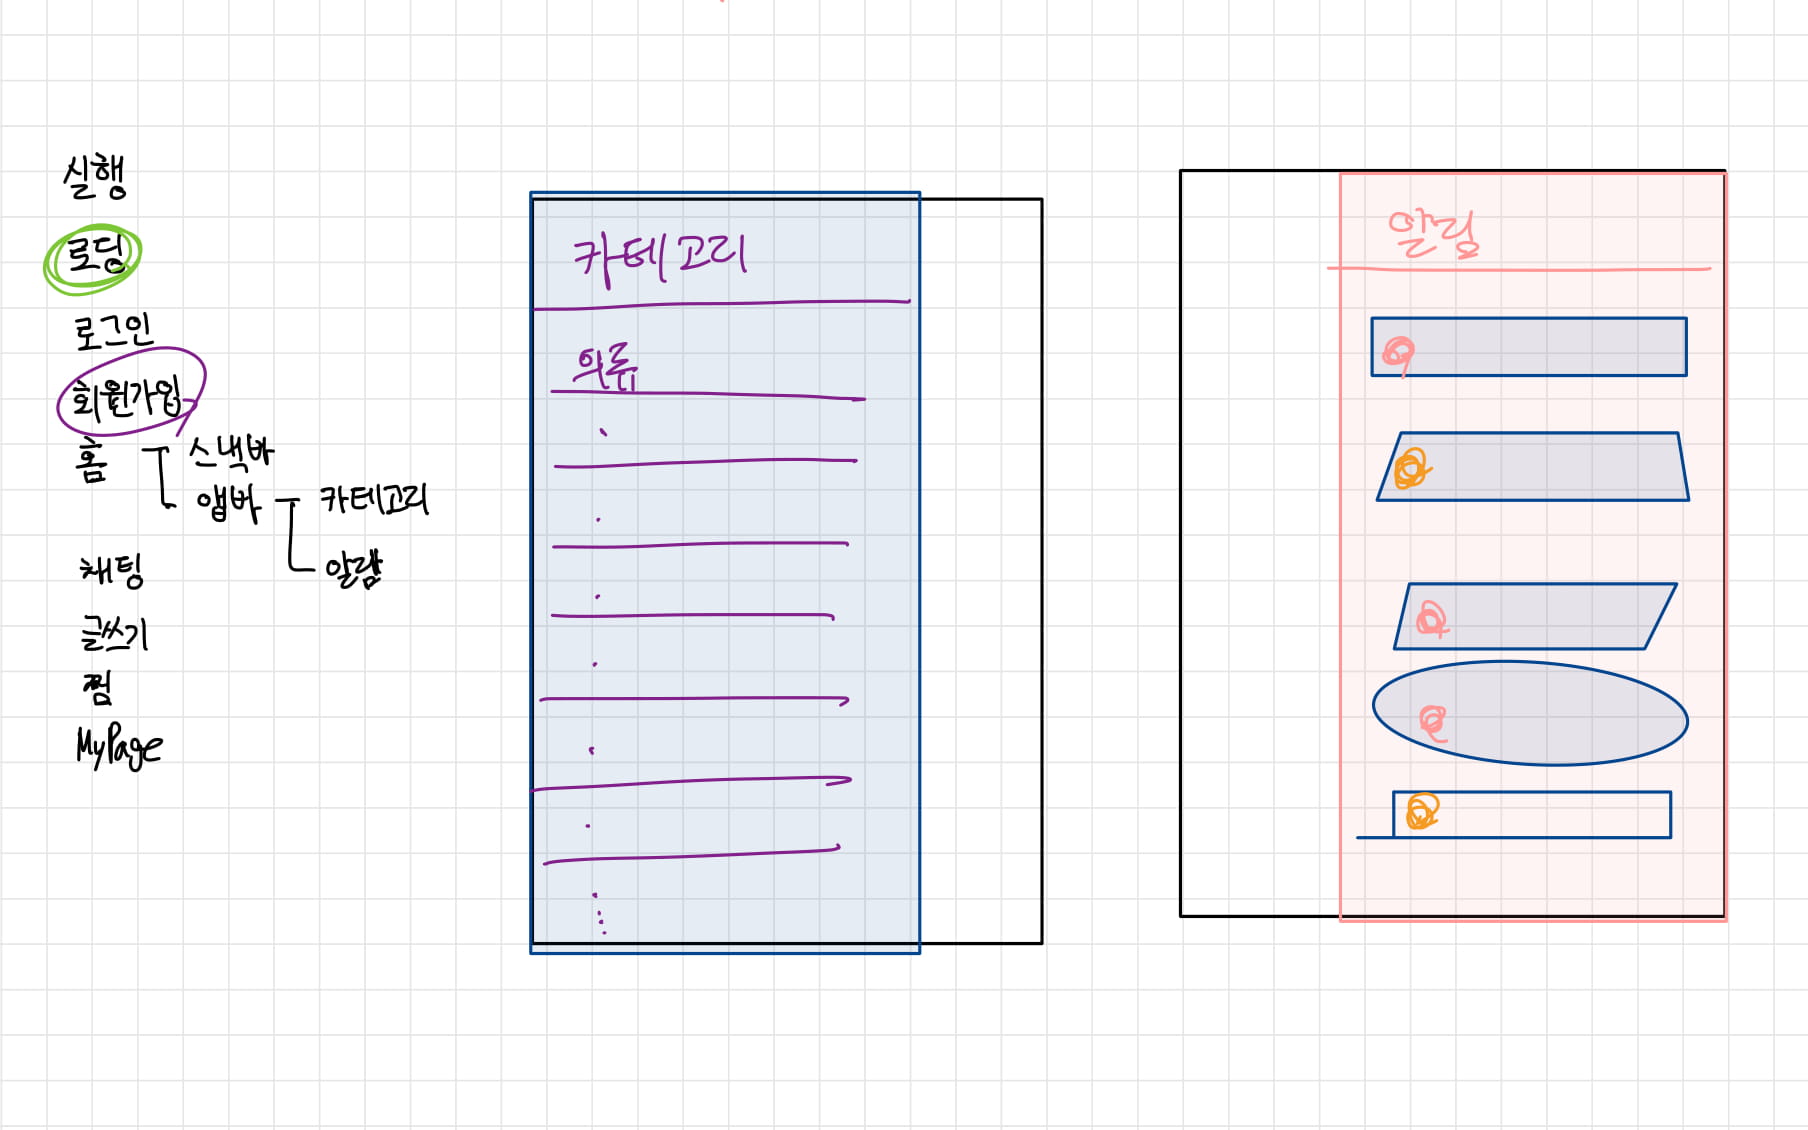 실행
로딩
로그인
회원가입
홈 스낵바
앱바 카테고리
알람
채팅
글쓰기
찜
MyPage
카테고리
의류
알림